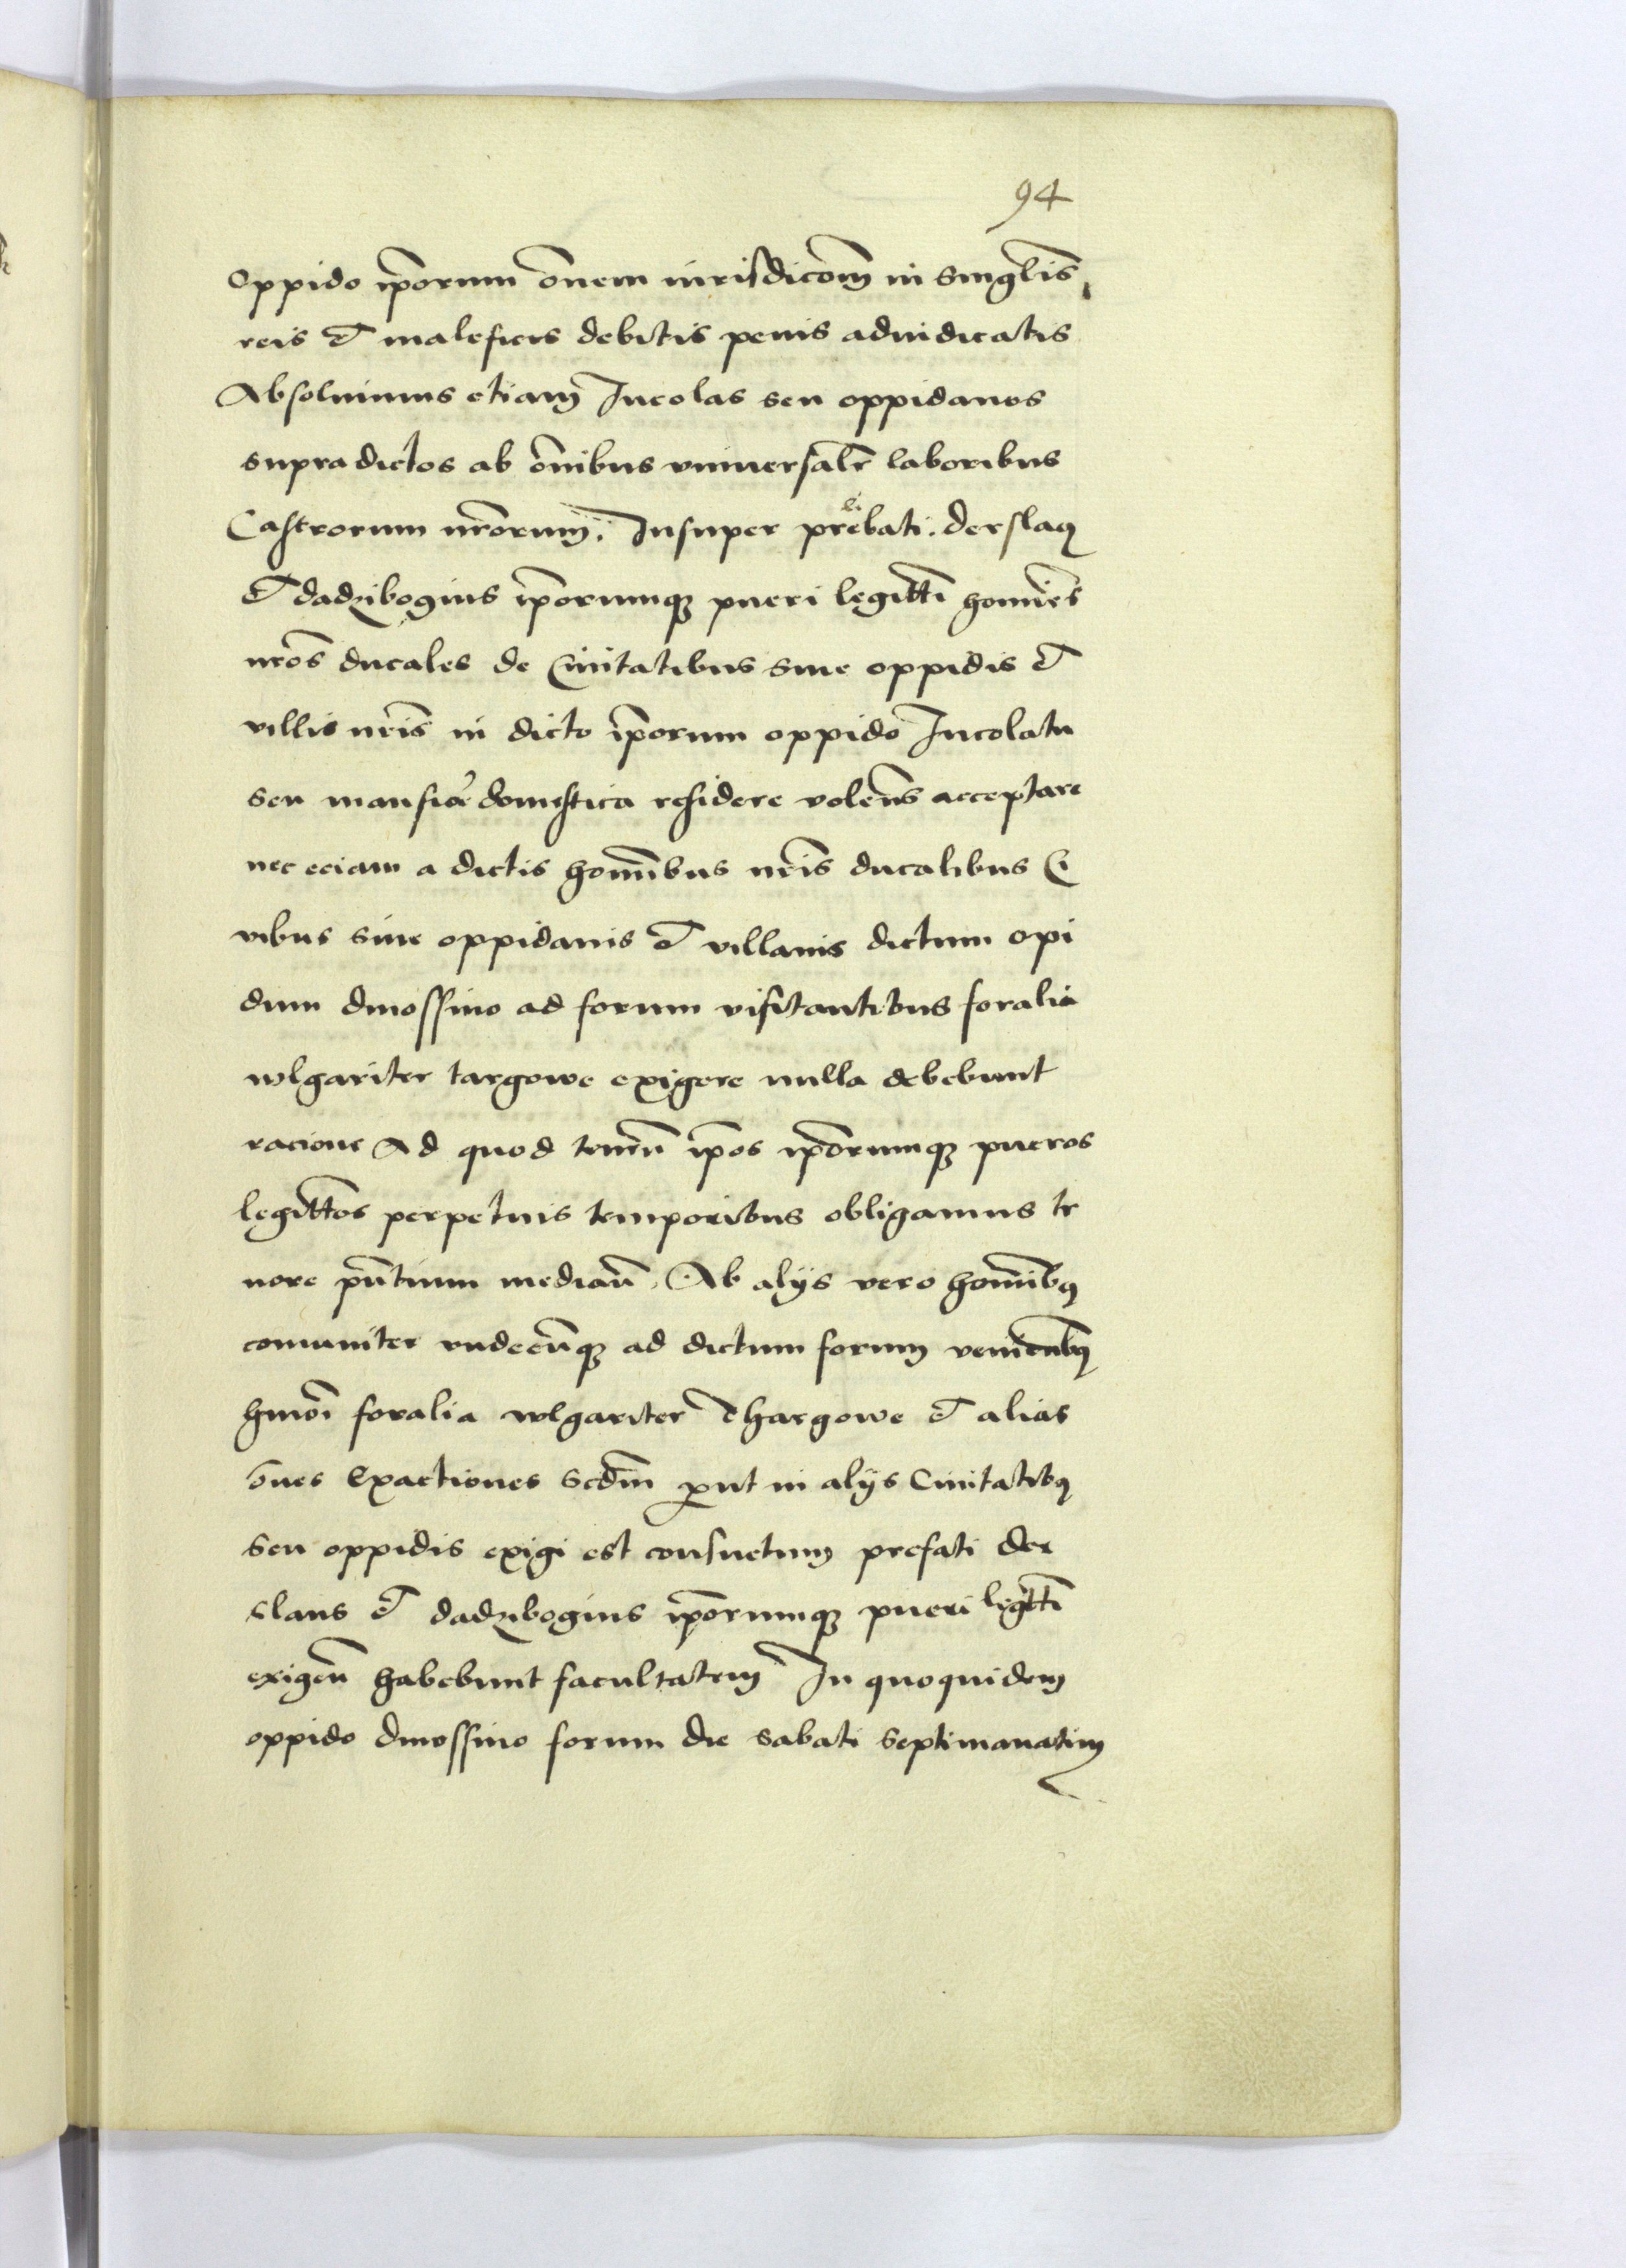 94
oppido ip̄orum om̄em iurisdicōm in singl̄is
reis et maleficis debitis penis adiudicatis
Absoluimus etiam Incolas seu oppidanos
supradictos ab om̄ibus vniuersalr̄ laboribus
Castrorum nr̄orum. Insuper prebati. derslaꝯ
et dadzibogius ip̄orumqꝫ pueri legittī homīes
nr̄os ducales de Ciuitatibus siue oppidis et
villis nr̄is in dicto ip̄orum oppido Incolatu
seu mansiōe domestica residere volen̄s acceptare
nec eciam a dictis homībus nr̄is ducalibus Ci
vibus siue oppidanis et villanis dictum opi
dum dmossino ad forum visitantibus foralia
wlgariter targowe exigere nulla debebunt
racione Ad quod tenen̄ ip̄os ip̄orumqꝫ pueros
legittōs perpetuis temporibus obligamus te
nore pn̄tium median̄. Ab alÿs vero homībꝯ
comuniter vndecūqꝫ ad dictum forum venientibꝯ
hmōi foralia wlgariter Thargowe et alias
om̄es Exactiones scdm̄ ꝓut in alÿs Ciuitatibꝯ
seu oppidis exigi est consuetum prefati der
slaus et dadzibogius ip̄orumqꝫ pueri legittī
exigen̄ habebunt facultatem In quoquidem
oppido dmossino forum die sabati septimanatim